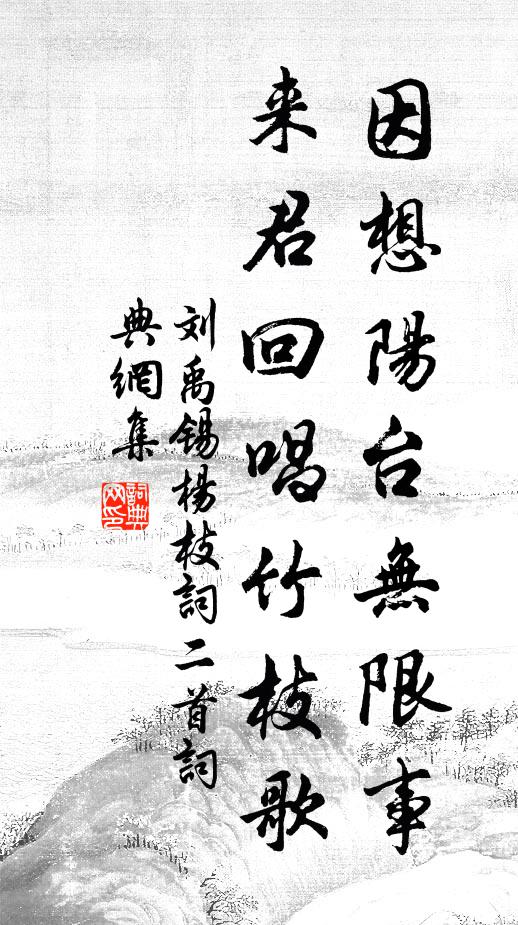 因想陽台無限事
来君回唱竹枝歌
刘禹锡楊枝詞二首詞
典網集
詞典网印